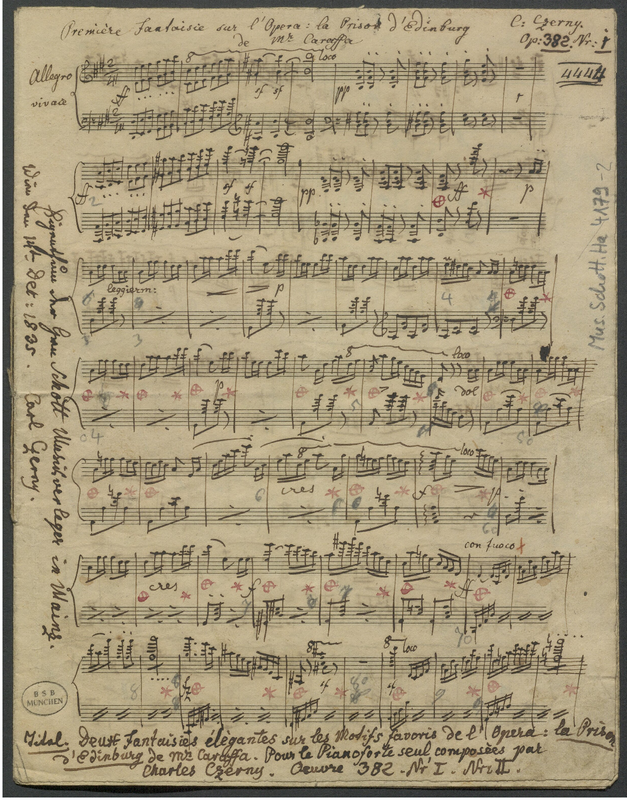 Première Fantaisie sur l'Opera: la Prison d'Edinburg
de Mr Caraffa
C: Czerny.
Op: 382. Nr: 1
4444
Allegro
vivace
8
loco
ff
sf sf
pp
ff
sf sf
pp
ff
p
leggierm:
p
8
loco
p
dol
8
loco
cres
f
p
con fuoco
cres
f
ff
8
8
loco
Eigenthum der Herrn Schott Musikverleger in Mainz.
Wien den 14ten Oct: 1835. Carl Czerny.
Mus. Schott. Ha 4179-2
BSB
MÜNCHEN
Titel: Deux Fantaisies élégantes sur les Motifs favoris de l'Opera: la Prison
d'Edinburg de Mr: Caraffa. Pour le Pianoforte seul composées par
Charles Czerny. Oeuvre 382. Nr I. Nr: II.